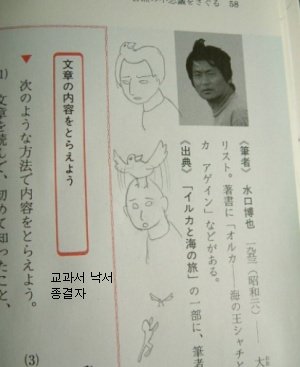 の不思議をさぐる 58
〈筆者〉 水口博也 (昭和 )―― 大
リスト。著書に「オルカ――海の王シャチと
カ アゲイン」などがある。
〈出典〉 「イルカと海の旅」の一部に、筆者
文章の内容をとらえよう
▼ 次のような方法で内容をとらえよう。
1) 文章を読んで、初めて知ったこと、
(3)
교과서 낙서
종결자